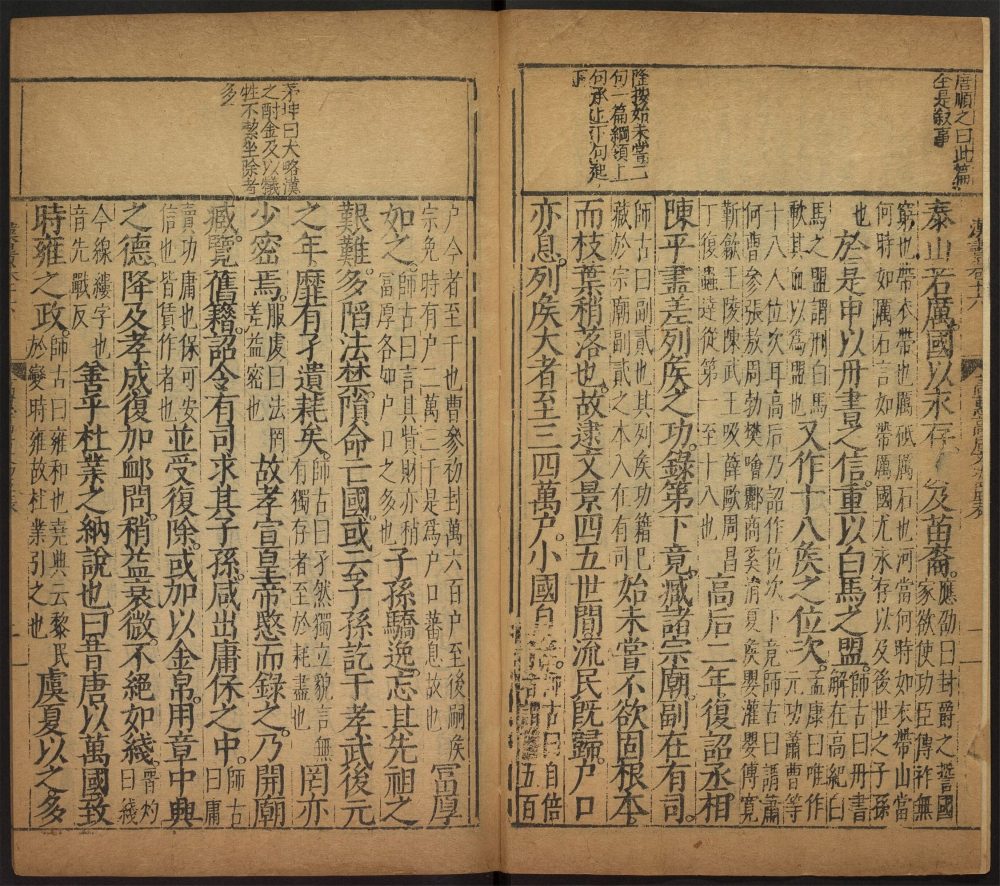 唐順之曰此篇
全是敘事
隆按始未嘗二
句一篇綱領上
句承上下句起
下
泰山若厲國以永存 及苗裔應劭曰封爵之誓國家欲使功臣傳祚無
窮也帶衣帶也厲砥厲石也河當何時如衣帶山當何時如厲石言如帶厲國尤永存以及後世之子孫
也於是申以丹書之信重以白馬之盟師古曰丹書解在高紀白
馬之盟謂刑白馬歃其血以爲盟也又作十八矦之位次孟康曰唯作元功蕭曹等
十八人位次耳高后乃詔作位次下竟師古曰謂蕭何曹參張敖周勃樊噲酈商奚涓夏矦嬰灌嬰傅寬
靳歙王陵陳武王吸薛歐周昌丁復蟲達從第一至十八也高后二年復詔丞相
陳平盡差列矦之功錄第下竟臧諸宗廟副在有司
師古曰副貳也其列矦功籍已藏於宗廟副貳之本入在有司始未嘗不欲固根本
而枝葉稍落也故逮文景四五世間流民既歸户口
亦息列矦大者至三四萬户小國自 師古曰自倍 五百
茅坤曰大略漢
之酎金及以犧
牲不潔坐除者
多
户今者至千也曹參初封萬六百户至後嗣矦宗免時有户二萬三千是爲户口蕃息故也富厚
如之師古曰言其貲財亦稍富厚各如户口之多也子孫驕逸忘其先祖之
艱難多陷法禁隕命亡國或云子孫訖于孝武後元
之年靡有孑遺耗矣師古曰孑然獨立貌言無有獨存者至於耗盡也罔亦
少密焉服虔曰法罔差益密也故孝宣皇帝愍而錄之乃開廟
臧覽舊籍詔令有司求其子孫咸出庸保之中師古曰庸
賣功庸也保可安信也皆賃作者也並受復除或加以金帛用章中興
之德降及孝成復加卹問稍益衰微不絕如綫晋灼曰綫
今線縷字也音先戰反善乎杜業之納說也曰昔唐以萬國致
時雍之政師古曰雍和也堯典云黎民於變時雍故杜業引之也虞夏以之多